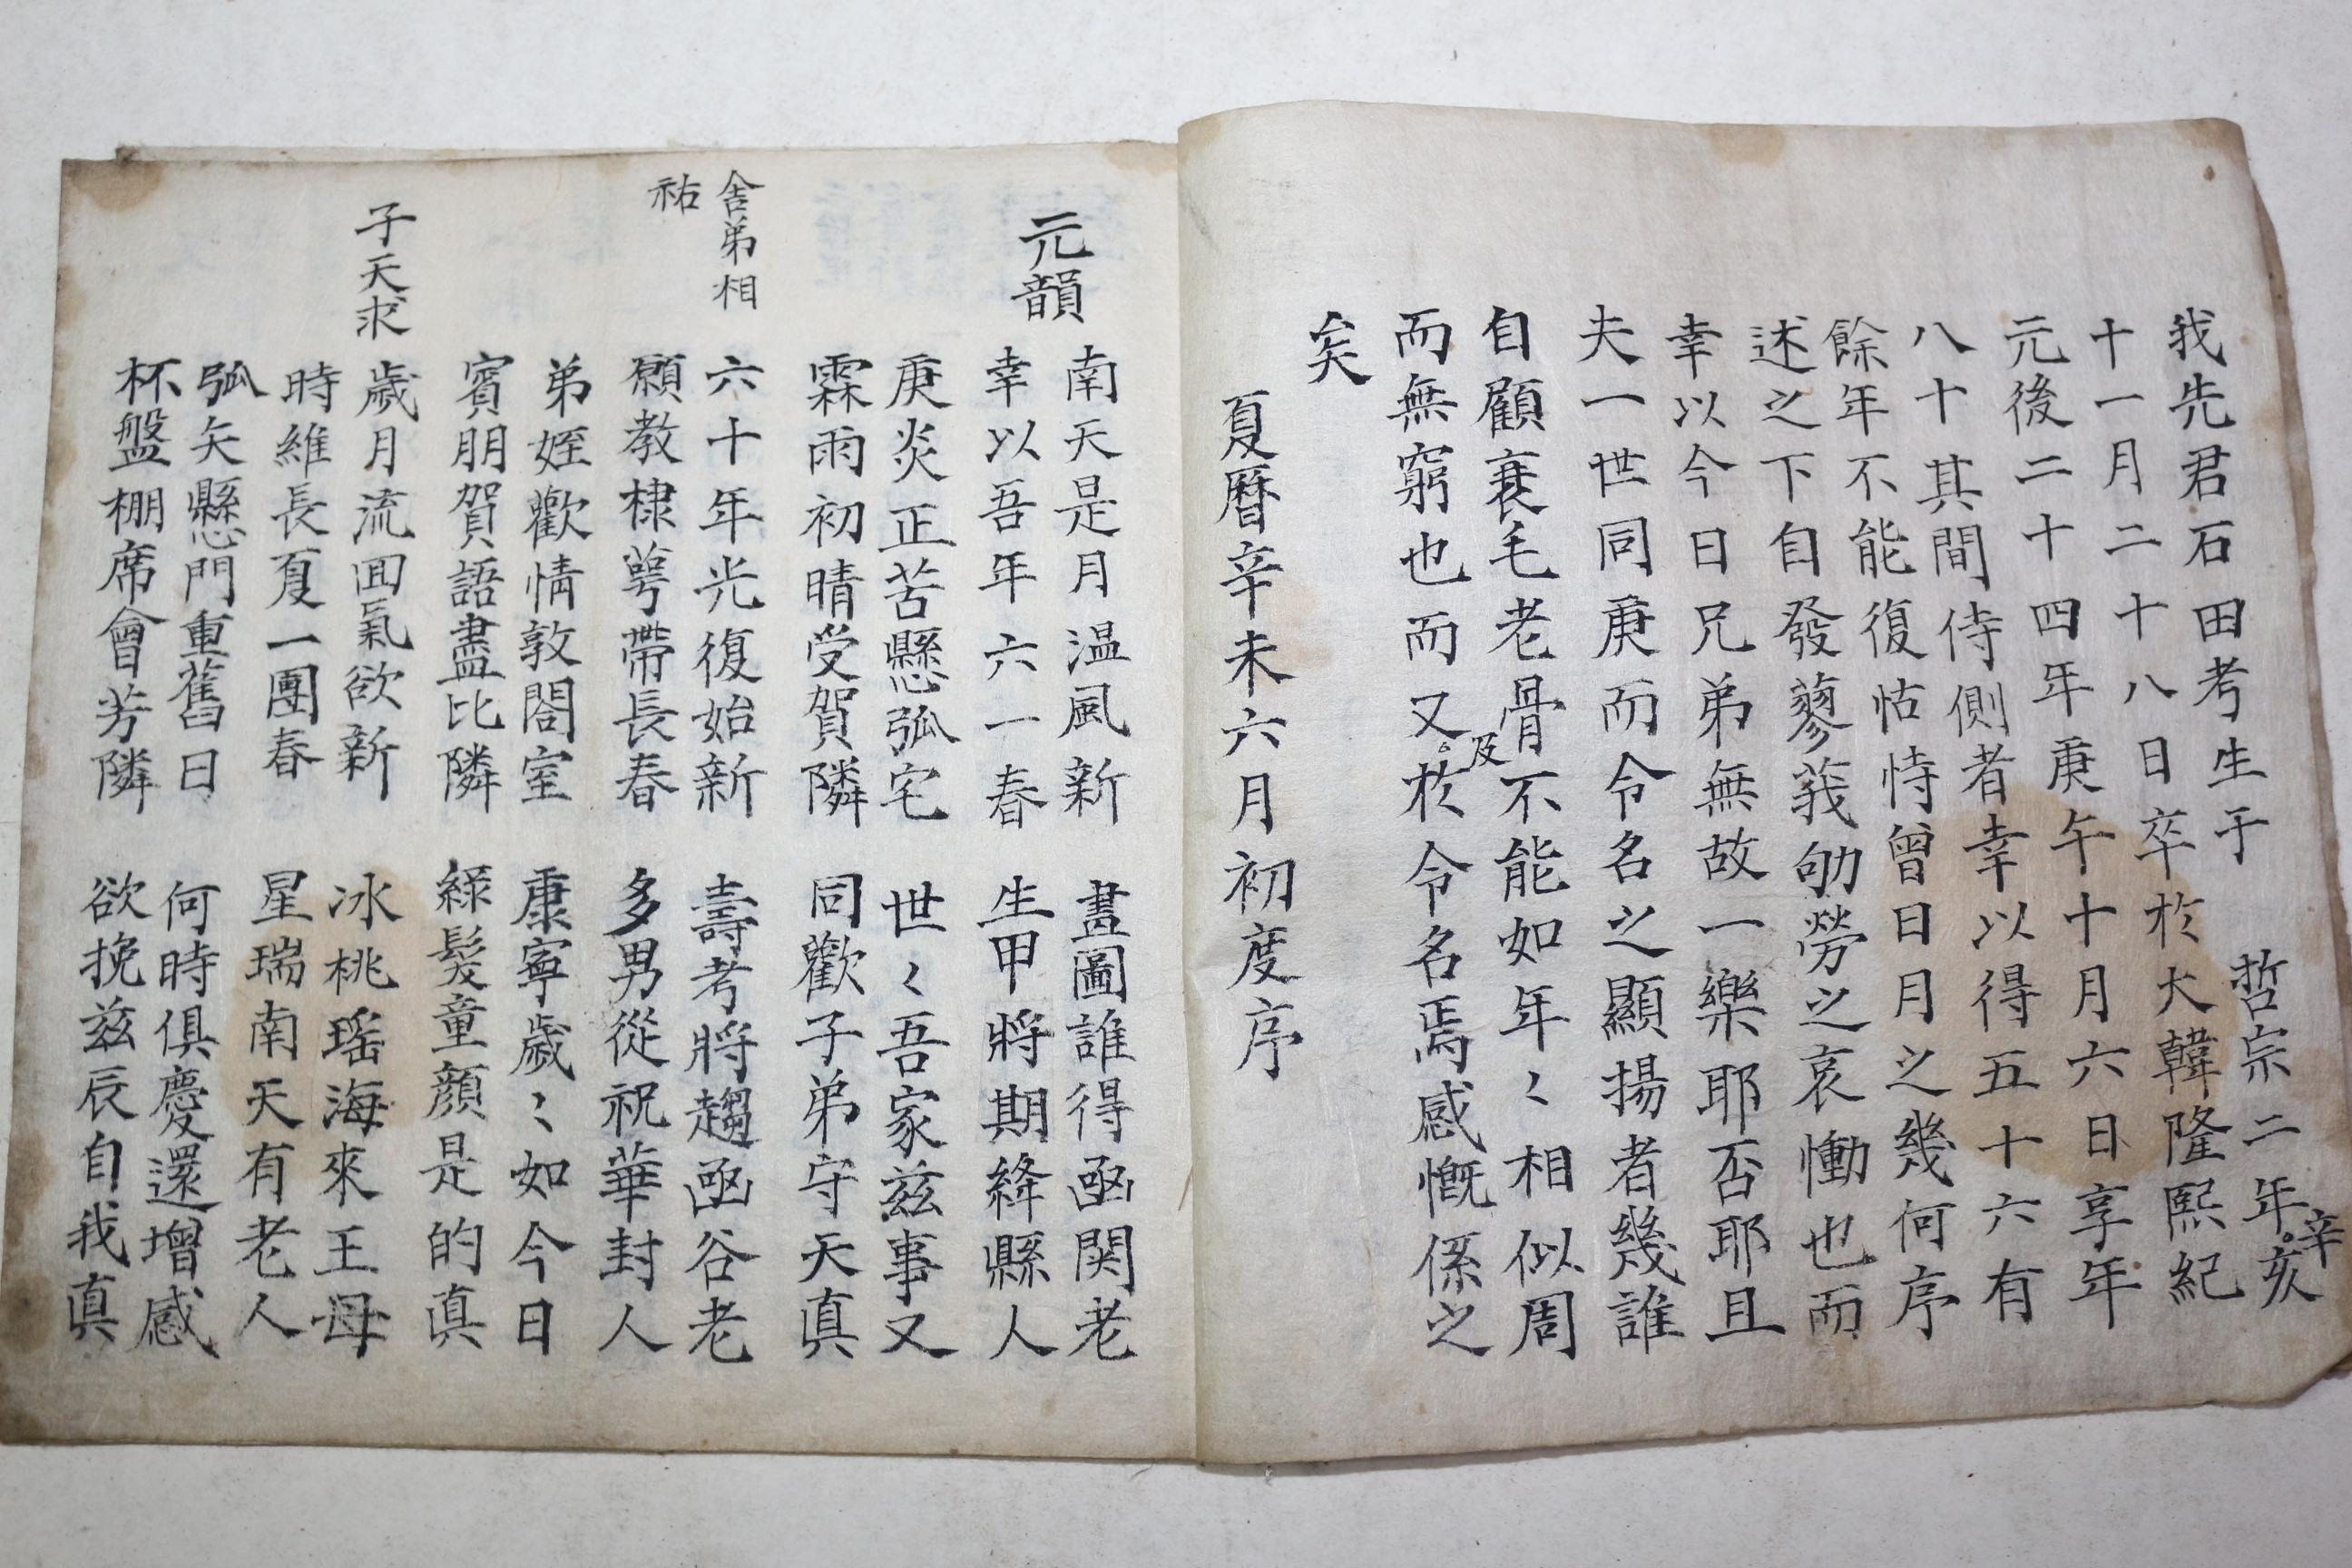 我先君石田考生于 哲宗二年辛亥
十一月二十八日卒於大韓隆熙紀
元後二十四年庚午十月六日享年
八十其間侍側者幸以得五十六有
餘年不能復怙恃曾日月之幾何序
述之下自發蓼莪劬勞之哀慟也而
幸以今日兄弟無故一樂耶否耶且
夫一世同庚而令名之顯揚者幾誰
自顧衰毛老骨不能如年〻相似周
而無窮也而又及於令名焉感慨係之
矣
夏曆辛未六月初度序
元韻
南天是月温風新 畫圖誰得凾関老
幸以吾年六一春 生甲將期絳縣人
庚炎正苦懸弧宅 世〻吾家兹事又
霖雨初晴受賀隣 同歡子弟守天真
舍弟相祐
六十年光復始新 壽考將趨凾谷老
願教棣萼帶長春 多男從祝華封人
弟姪歡情敦閤室 康寧歲〻如今日
賓朋賀語盡比隣 綠髮童顔是的真
子天求
歲月流回氣欲新 冰桃瑤海來王母
時維長夏一團春 星瑞南天有老人
弧矢懸門重舊日 何時俱慶還增感
杯盤棚席會芳隣 欲挽兹辰自我真